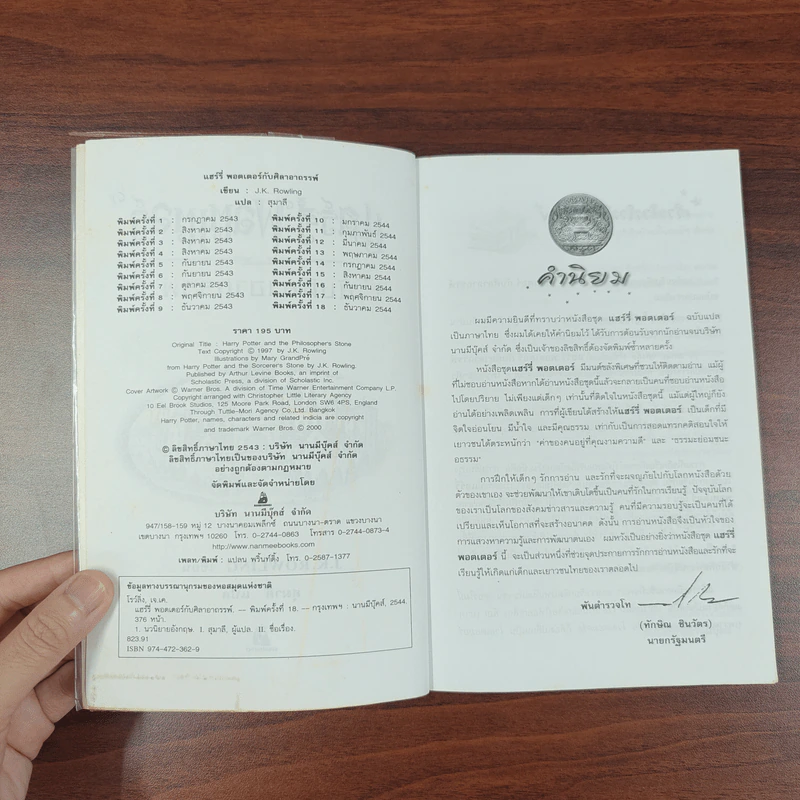 แฮร์รี่ พอตเตอร์กับศิลาอาถรรพ์
เขียน : J.K. Rowling
แปล : สุมาลี
พิมพ์ครั้งที่ 1 : กรกฎาคม 2543
พิมพ์ครั้งที่ 2 : สิงหาคม 2543
พิมพ์ครั้งที่ 3 : สิงหาคม 2543
พิมพ์ครั้งที่ 4 : สิงหาคม 2543
พิมพ์ครั้งที่ 5 : กันยายน 2543
พิมพ์ครั้งที่ 6 : กันยายน 2543
พิมพ์ครั้งที่ 7 : ตุลาคม 2543
พิมพ์ครั้งที่ 8 : พฤศจิกายน 2543
พิมพ์ครั้งที่ 9 : ธันวาคม 2543
พิมพ์ครั้งที่ 10 : มกราคม 2544
พิมพ์ครั้งที่ 11 : กุมภาพันธ์ 2544
พิมพ์ครั้งที่ 12 : มีนาคม 2544
พิมพ์ครั้งที่ 13 : พฤษภาคม 2544
พิมพ์ครั้งที่ 14 : กรกฎาคม 2544
พิมพ์ครั้งที่ 15 : สิงหาคม 2544
พิมพ์ครั้งที่ 16 : กันยายน 2544
พิมพ์ครั้งที่ 17 : พฤศจิกายน 2544
พิมพ์ครั้งที่ 18 : ธันวาคม 2544
ราคา 195 บาท
Original Title : Harry Potter and the Philosopher's Stone
Text Copyright © 1997 by J.K. Rowling
Illustrations by Mary GrandPré
from Harry Potter and the Sorcerer's Stone by J.K. Rowling.
Published by Arthur Levine Books, an imprint of
Scholastic Press, a division of Scholastic Inc.
Cover Artwork © Warner Bros. A division of Time Warner Entertainment Company L.P.
Copyright arranged with Christopher Little Literary Agency
10 Eel Brook Studios, 125 Moore Park Road, London SW6 4PS, England
Through Tuttle-Mori Agency Co.,Ltd. Bangkok
Harry Potter, names, characters and related indicia are copyright
and trademark Warner Bros. © 2000
© ลิขสิทธิ์ภาษาไทย 2543 : บริษัท นานมีบุ๊คส์ จำกัด
ลิขสิทธิ์ภาษาไทยเป็นของบริษัท นานมีบุ๊คส์ จำกัด
อย่างถูกต้องตามกฎหมาย
จัดพิมพ์และจัดจำหน่ายโดย
บริษัท นานมีบุ๊คส์ จำกัด
947/158-159 หมู่ 12 บางนาคอมเพล็กซ์ ถนนบางนา-ตราด แขวงบางนา
เขตบางนา กรุงเทพฯ 10260 โทร. 0-2744-0863 โทรสาร 0-2744-0873-4
http://www.nanmeebooks.com
เพลท/พิมพ์ : แปลน พริ้นท์ติ้ง โทร. 0-2587-1377
ข้อมูลทางบรรณานุกรมของหอสมุดแห่งชาติ
โรว์ลิ่ง, เจ.เค.
แฮร์รี่ พอตเตอร์กับศิลาอาถรรพ์. — พิมพ์ครั้งที่ 18. — กรุงเทพฯ : นานมีบุ๊คส์, 2544.
376 หน้า.
1. นวนิยายอังกฤษ. I. สุมาลี, ผู้แปล. II. ชื่อเรื่อง.
823.91
ISBN 974-472-362-9
คำนิยม
ผมมีความยินดีที่ทราบว่าหนังสือชุด แฮร์รี่ พอตเตอร์ ฉบับแปล
เป็นภาษาไทย ซึ่งผมได้เคยให้คำนิยมไว้ ได้รับการต้อนรับจากนักอ่านจนบริษัท
นานมีบุ๊คส์ จำกัด ซึ่งเป็นเจ้าของลิขสิทธิ์ต้องจัดพิมพ์ซ้ำหลายครั้ง
หนังสือชุดแฮร์รี่ พอตเตอร์ มีมนต์ขลังพิเศษที่ชวนให้ติดตามอ่าน แม้ผู้
ที่ไม่ชอบอ่านหนังสือหากได้อ่านหนังสือชุดนี้แล้วจะกลายเป็นคนที่ชอบอ่านหนังสือ
ไปโดยปริยาย ไม่เพียงแต่เด็กๆ เท่านั้นที่ติดใจในหนังสือชุดนี้ แม้แต่ผู้ใหญ่ก็ยัง
อ่านได้อย่างเพลิดเพลิน การที่ผู้เขียนได้สร้างให้แฮร์รี่ พอตเตอร์ เป็นเด็กที่มี
จิตใจอ่อนโยน มีน้ำใจ และมีคุณธรรม เท่ากับเป็นการสอดแทรกคติสอนใจให้
เยาวชนได้ตระหนักว่า “ค่าของคนอยู่ที่คุณงามความดี” และ “ธรรมะย่อมชนะ
อธรรม”
การฝึกให้เด็กๆ รักการอ่าน และรักที่จะผจญภัยไปกับโลกหนังสือด้วย
ตัวของเขาเอง จะช่วยพัฒนาให้เขาเติบโตขึ้นเป็นคนที่รักในการเรียนรู้ ปัจจุบันโลก
ของเราเป็นโลกของสังคมข่าวสารและความรู้ คนที่มีความรอบรู้จะเป็นคนที่ได้
เปรียบและเห็นโอกาสที่จะสร้างอนาคต ดังนั้น การอ่านหนังสือจึงเป็นหัวใจของ
การแสวงหาความรู้และการพัฒนาตนเอง ผมหวังเป็นอย่างยิ่งว่าหนังสือชุด แฮร์รี่
พอตเตอร์ นี้ จะเป็นส่วนหนึ่งที่ช่วยจุดประกายการรักการอ่านหนังสือและรักที่จะ
เรียนรู้ให้เกิดแก่เด็กและเยาวชนไทยของเราตลอดไป
พันตำรวจโท
(ทักษิณ ชินวัตร)
นายกรัฐมนตรี